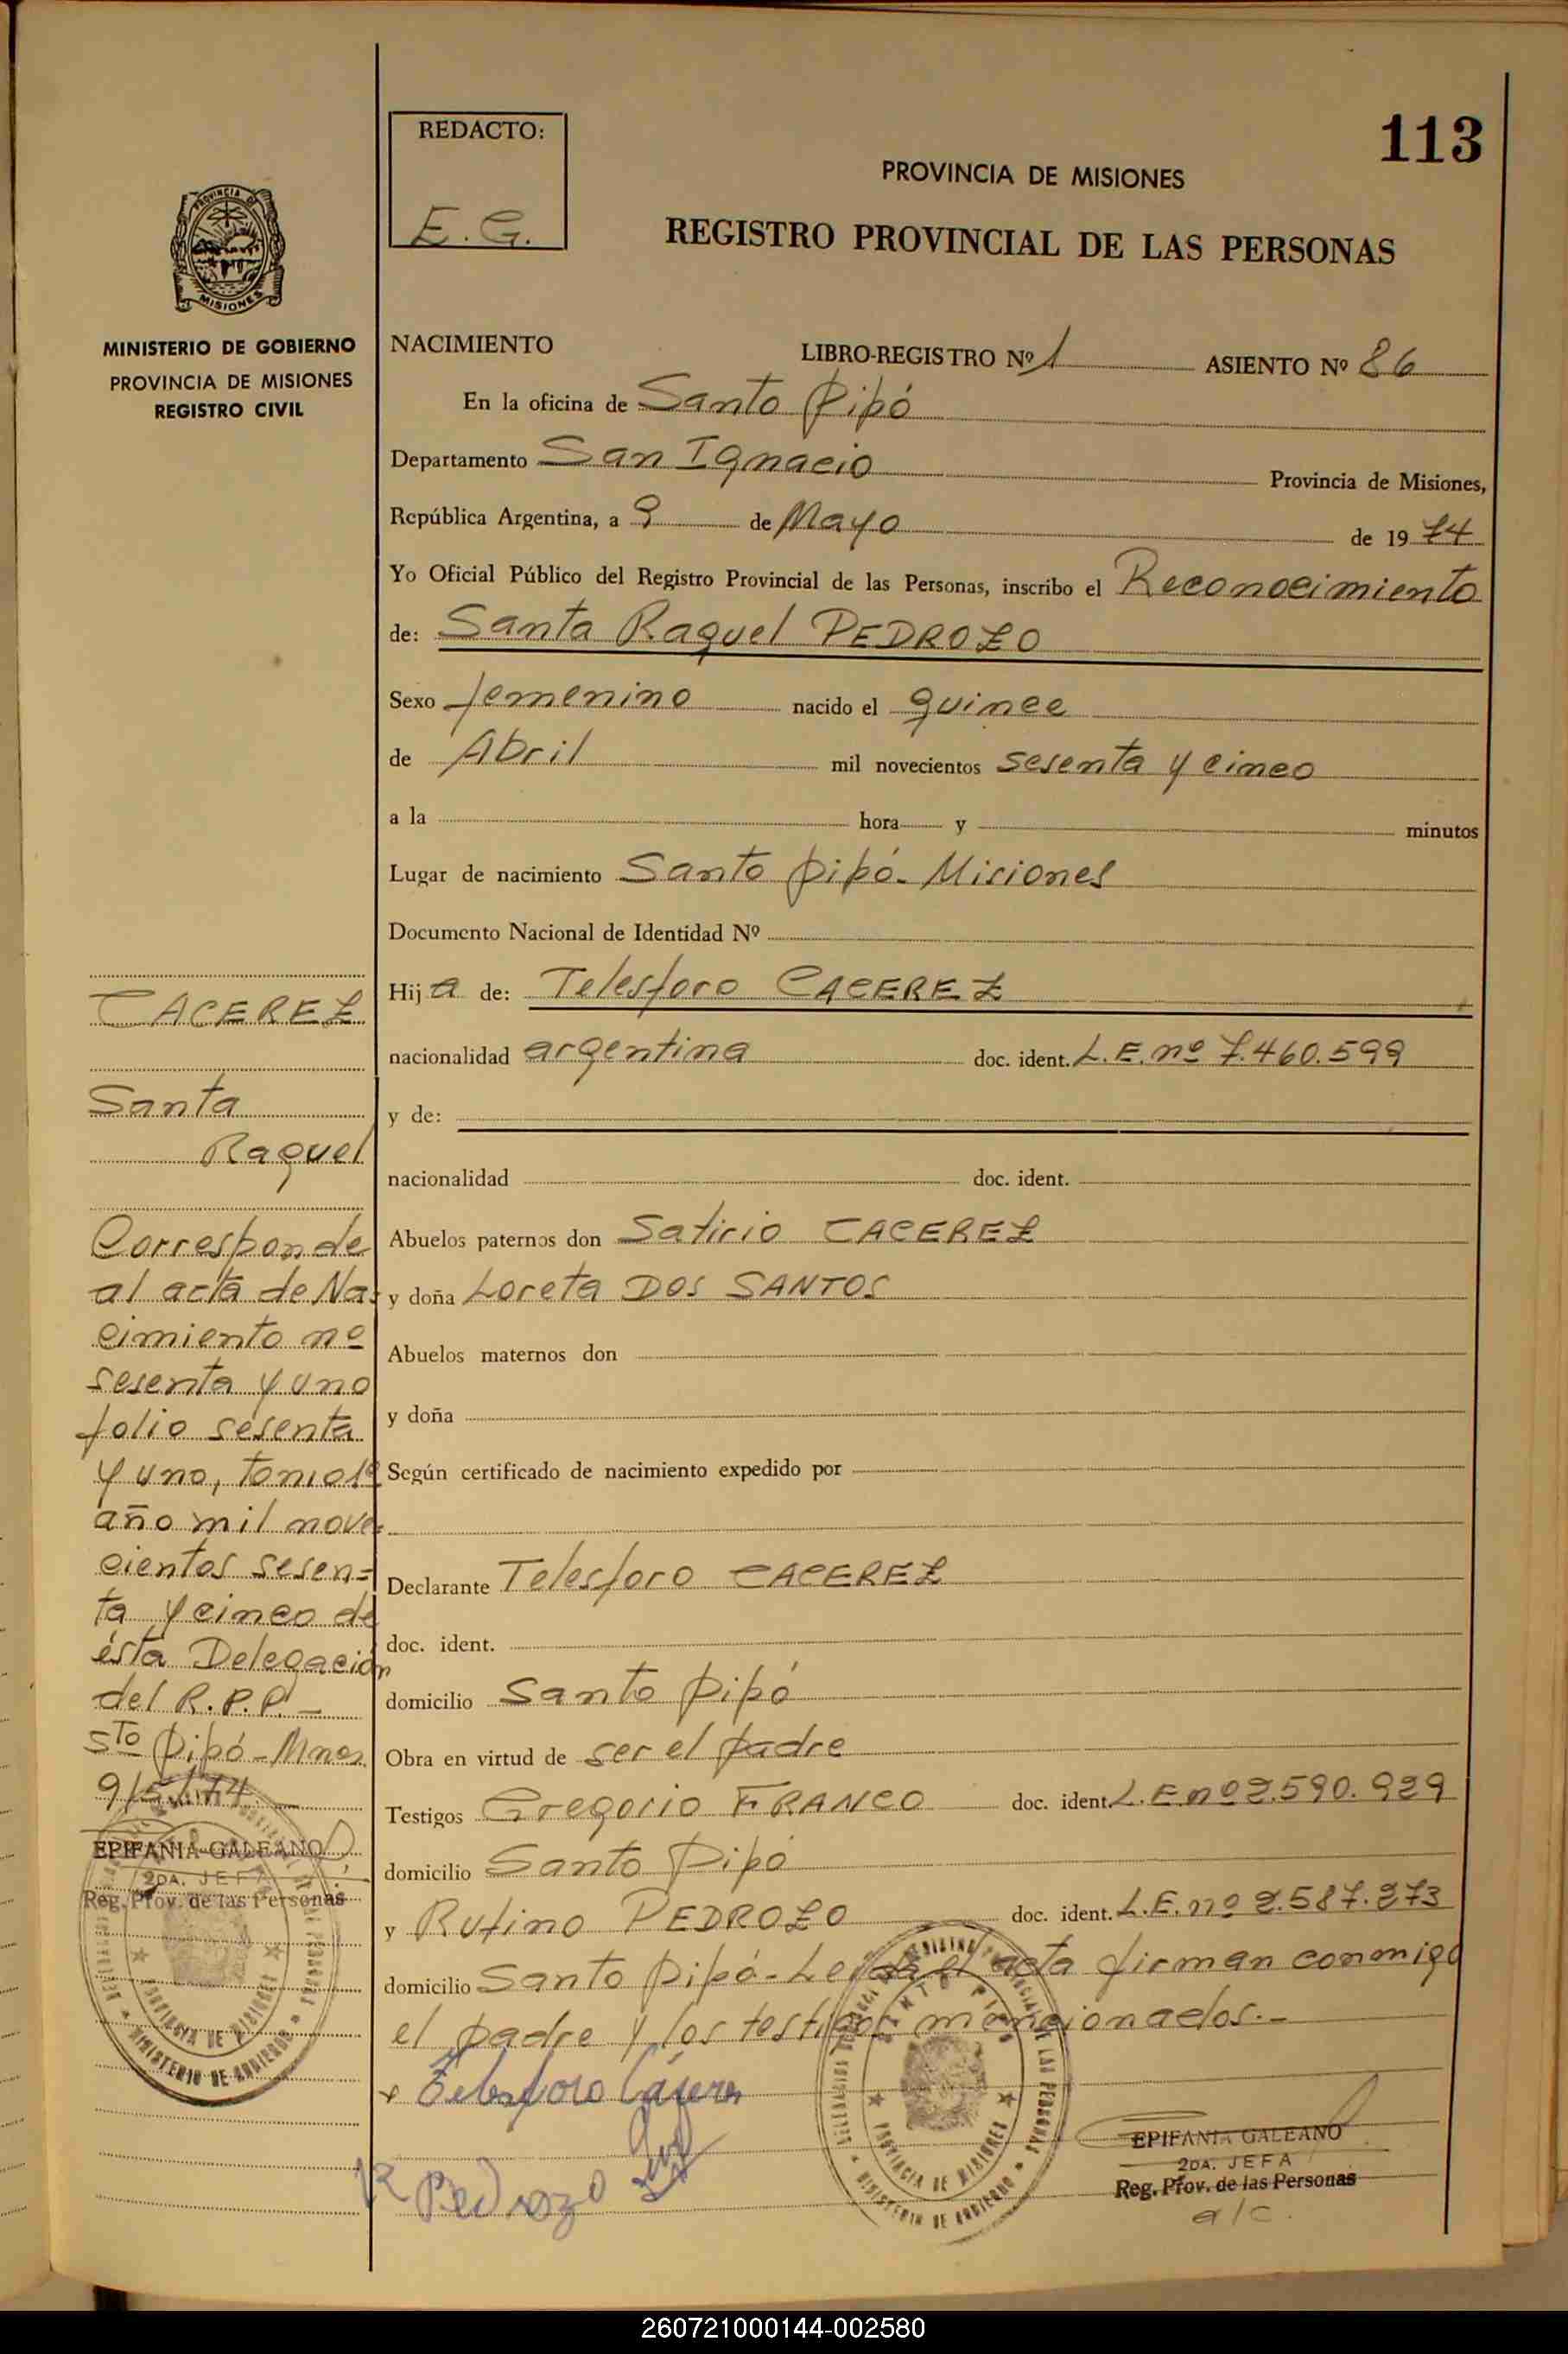 113
REDACTO:
E. G.
PROVINCIA DE MISIONES
REGISTRO PROVINCIAL DE LAS PERSONAS
PROVINCIA DE
MISIONES
MINISTERIO DE GOBIERNO
PROVINCIA DE MISIONES
REGISTRO CIVIL
NACIMIENTO LIBRO-REGISTRO Nº 1 ASIENTO Nº 86
En la oficina de Santo Pipó
Departamento San Ignacio Provincia de Misiones,
República Argentina, a 9 de Mayo de 1974
Yo Oficial Público del Registro Provincial de las Personas, inscribo el Reconocimiento
de: Santa Raquel PEDROZO
Sexo femenino nacido el quince
de Abril mil novecientos sesenta y cinco
a la hora y minutos
Lugar de nacimiento Santo Pipó- Misiones
Documento Nacional de Identidad Nº
Hija de: Telesforo CACEREZ
nacionalidad argentina doc. ident. L.E. nº 7.460.599
y de:
nacionalidad doc. ident.
Abuelos paternos don Satirio CACEREZ
y doña Loreta DOS SANTOS
Abuelos maternos don
y doña
Según certificado de nacimiento expedido por
Declarante Telesforo CACEREZ
doc. ident.
domicilio Santo Pipó
Obra en virtud de ser el padre
Testigos Gregorio FRANCO doc. ident. L.E. nº 2.590.929
domicilio Santo Pipó
y Rufino PEDROZO doc. ident. L.E. nº 2.587.273
domicilio Santo Pipó- Leída el acta firman conmigo
el padre y los testigos mencionados.-
x Telesforo Cáceres
R Pedrozo
EPIFANIA GALEANO
2DA. JEFA
Reg. Prov. de las Personas
a/c.
CACEREZ
Santa
Raquel
Corresponde
al acta de Na-
cimiento nº
sesenta y uno
folio sesenta
y uno, tomo 1º
año mil nove-
cientos sesen=
ta y cinco de
ésta Delegación
del R.P.P. -
Sto Pipó - Mnes.
9/5/74.
EPIFANIA GALEANO
2DA. JEFA
Reg. Prov. de las Personas
PROVINCIA DE MISIONES
MINISTERIO DE GOBIERNO
SANTO PIPO
PROVINCIA DE MISIONES
MINISTERIO DE GOBIERNO
260721000144-002580